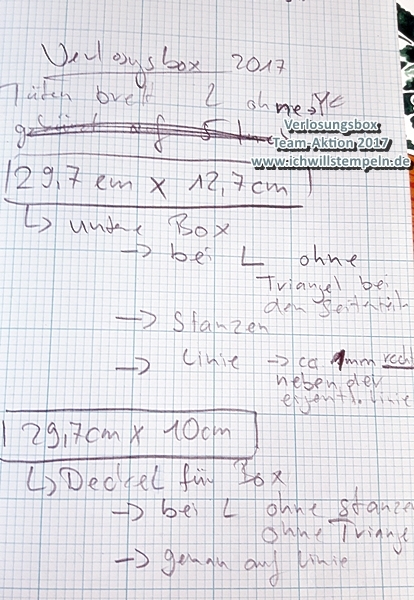 Verlosysbox 2017
Tüten brett 2 ohne
Verlosungsbox
Team-Aktion 2017
www.ichwillstempeln.de
29,7 cm x 12,7cm
↳ untere Box
→ bei L ohne
Triangel bei
den Seitenteilen
→ Stanzen
→ Linie → ca 1mm recht
neben der
eigentl. Linie
29,7cm x 10cm
↳ Deckel für Box
→ bei L ohne Stanzen
ohne Triangel
→ genau auf Linie